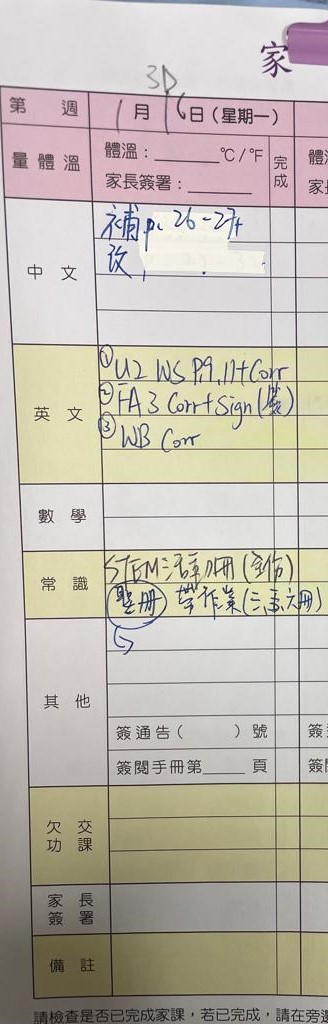 家
3D
第 週 1月16日(星期一)
量體溫 體溫：______°C/°F 完成
家長簽署：______ 家
中文 補 p. 26-27+
改
英文 ① U2 WS P.9, 11+Corr
② FA 3 Corr+Sign (簽)
③ WB Corr
數學
常識 STEM活動冊(全份)
帶作業(三、五、六冊)
其他
簽通告( )號
簽閱手冊第____頁
欠交功課
家長簽署
備註
請檢查是否已完成家課，若已完成，請在旁